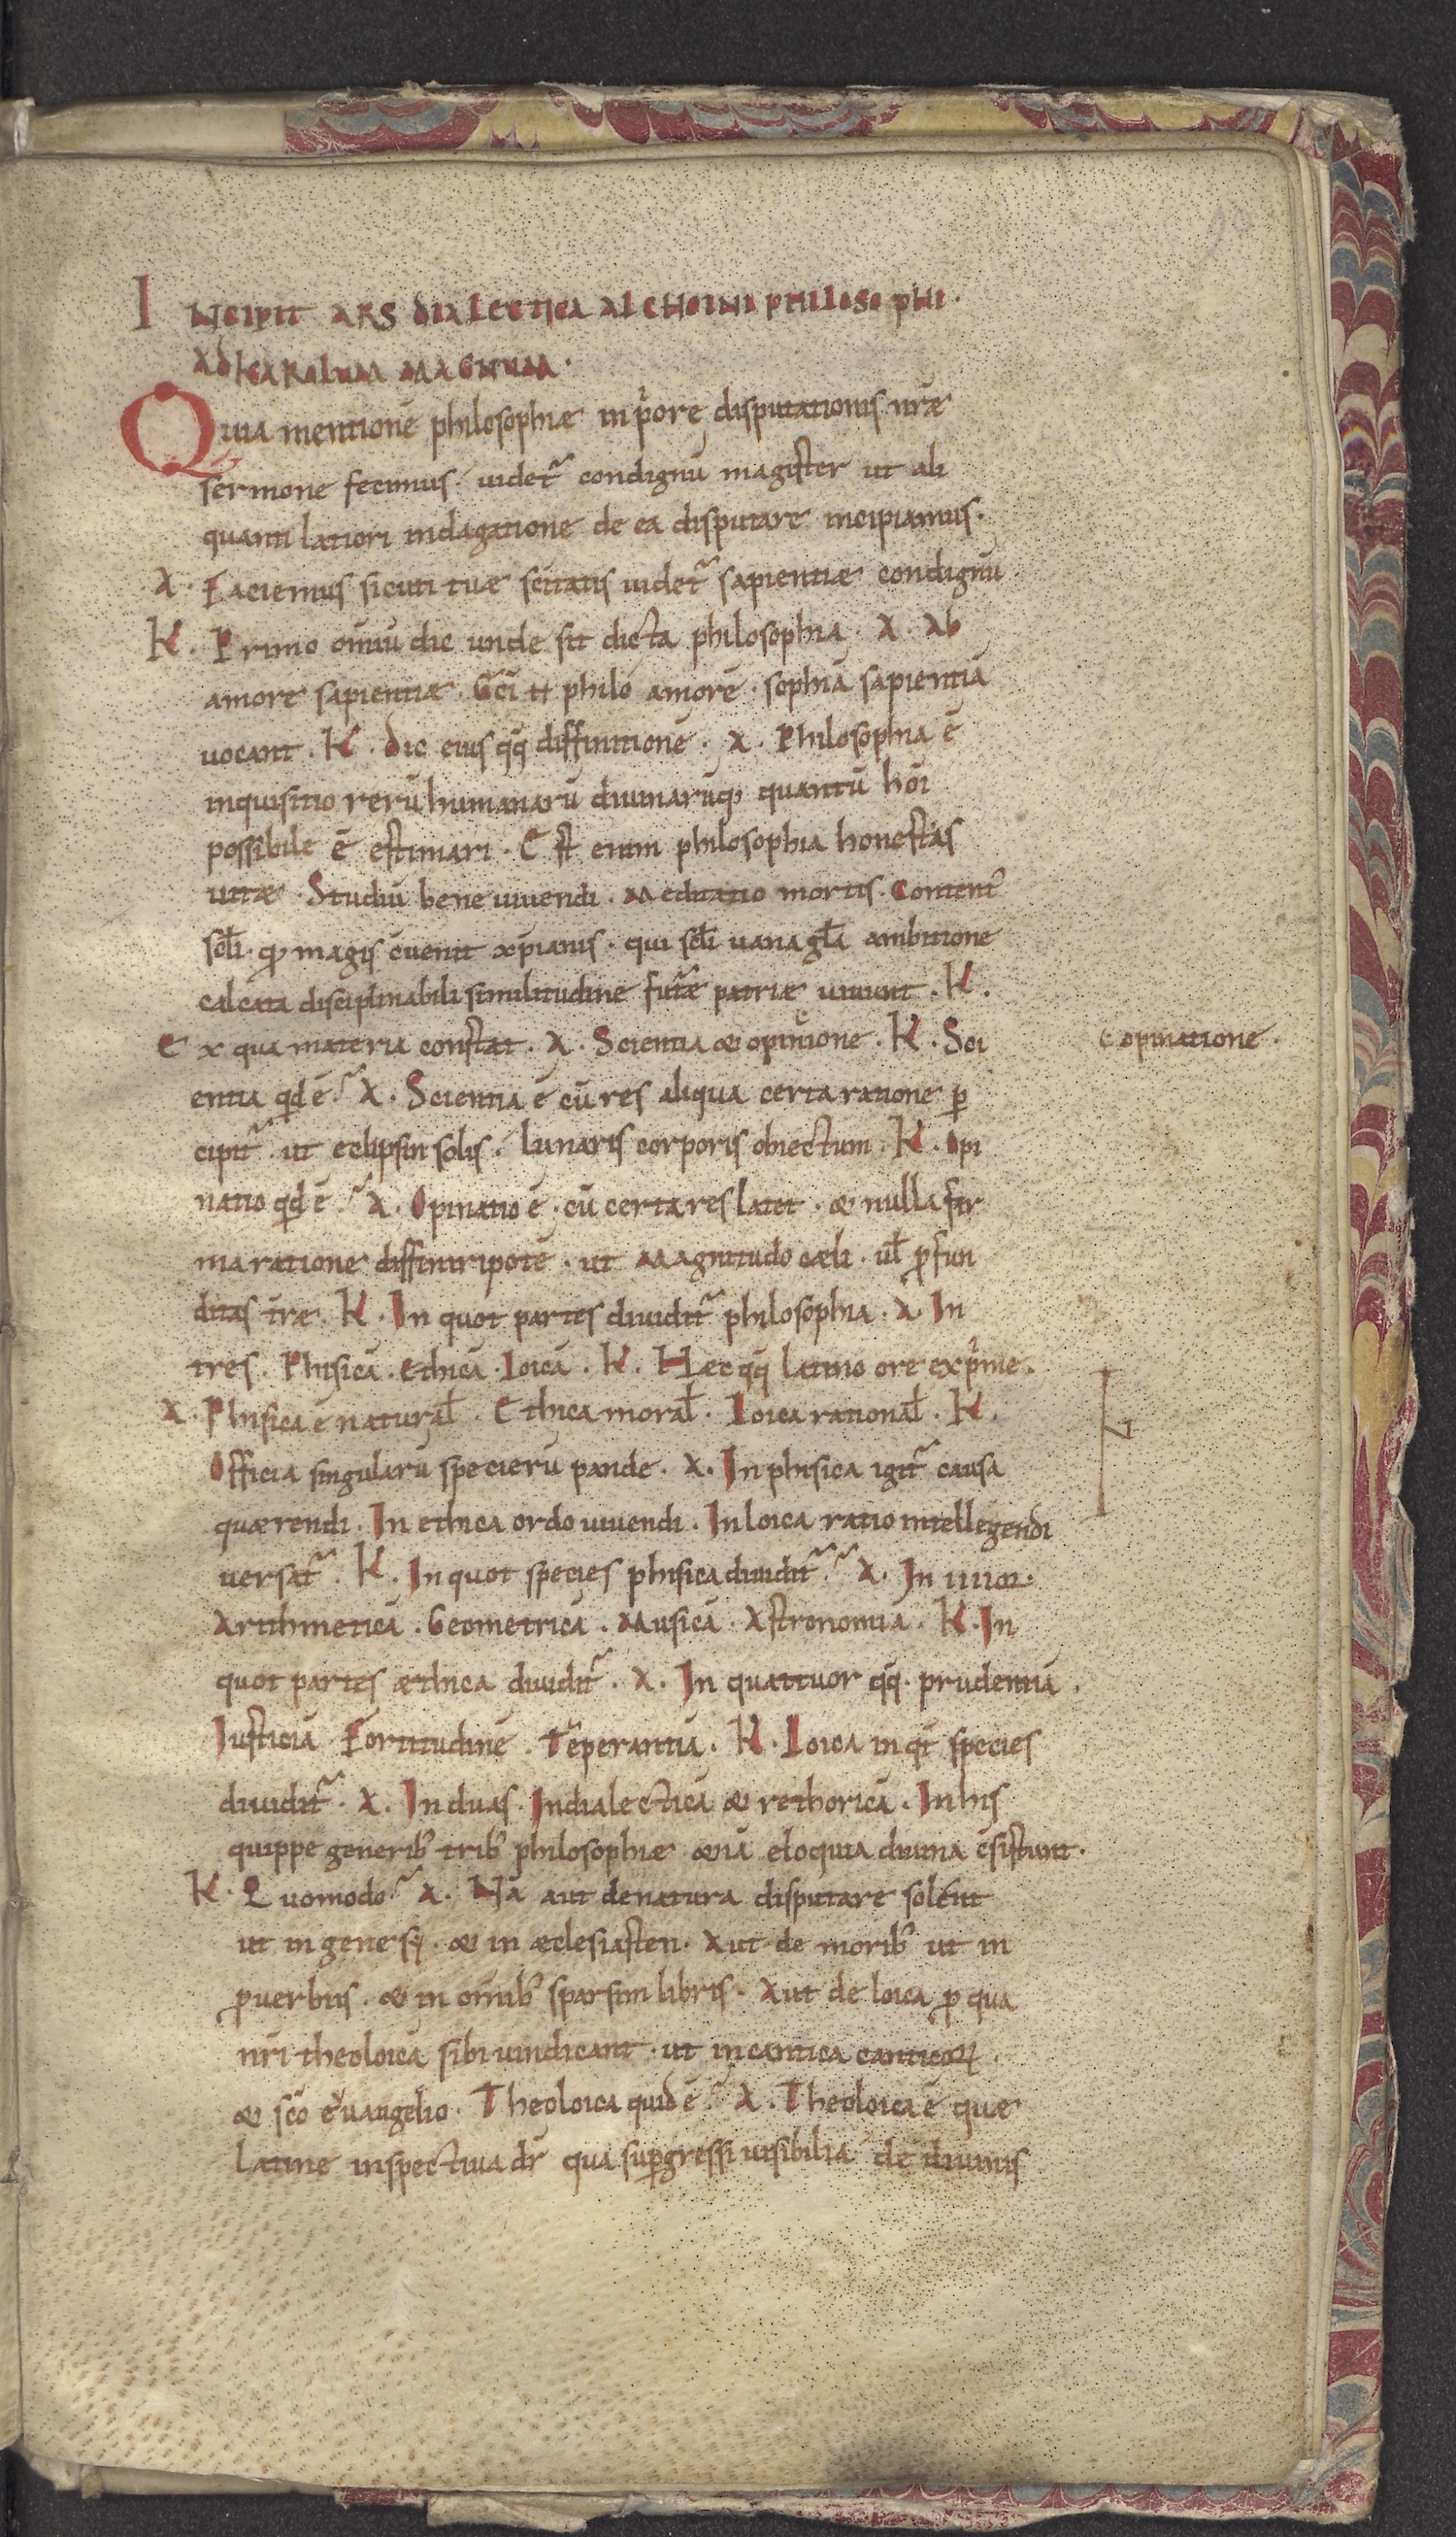 INCIPIT ARS DIALECTICA ALCHOINI PHILOSOPHI.
AD KAROLUM MAGNUM.
Quia mentionē philosophiæ in p͛ore disputationis nr̄æ
sermone fecimus. uidet᷑ condignū magister ut ali
quanti latiori indagatione de ea disputare incipiamus.
A. Faciemus sicuti tuæ sc̄itatis uidet᷑ sapientiæ condignū
K. Primo om̄iū dic unde sit dicta philosophia. A. Ab
amore sapientiæ. Gc̄i
philo amorē. sophiā sapientiā
uocant. K. Dic eius qq̄ diffinitionē. A. Philosophia ē
inquisitio rerū humanarū diuinarūq; quantū hōi
possibile ē estimari. Est enim philosophia honestas
uitæ. Studiū bene uiuendi. Meditatio mortis. Contemt᷑
sc̄li. qđ magis ꝯuenit xp̄ianis. qui sc̄li uana gl̄a ambitione
calcata disciplinabili similitudine fut᷑æ patriæ uiuunt. K.
Ex qua materia constat. A. Scientia & opinione. K. Sci
opinatione.
entia qd ē? A. Scientia ē cū res aliqua certa ratione ꝑ
cipit᷑. ut eclipsin solis. lunaris corporis obiectum. K. Opi
natio qd ē? A. Opinatio ē. cū certa res latet. & nulla fir
ma ratione diffiniri potē. ut magnitudo cæli. ul̄ ꝓfun
ditas t̄ræ. K. In quot partes diuidit᷑ philosophia. A. In
tres. Phisicā. Ethicā. Loicā. K. Hæc qq̄ latino ore exp͛me.
A. Phisica ē natural̄. Ethica moral̄. Loica rational̄. K.
Officia singularū specierū pande. A. In phisica igit᷑ causa
quærendi. In ethica ordo uiuendi. In loica ratio intellegendi
uersat᷑. K. In quot species phisica diuidit᷑? A. In iiiior.
Arithmeticā. Geometricā. Musicā. Astronomiā. K. In
quot partes æthica diuidit᷑. A. In quattuor qq̄. prudentiā.
Iusticiā Fortitudinē. Tēperantiā. K. Loica in qt̄ species
diuidit᷑. A. In duas. In dialecticā & rethoricā. In his
quippe generib; trib; philosophiæ &iā eloquia diuina ꝯsistunt.
K. Quomodo? A. Nā aut de natura disputare solent
ut in genesi. & in æclesiasten. Aut de morib; ut in
ꝓuerbiis. & in om̄ib; sparsim libris. Aut de loica ꝓ qua
nr̄i theoloicā sibi uindicant. ut in cantica canticoꝝ.
& sc̄o euuangelio. Theoloica quid ē? A. Theoloica ē quæ
latine inspectiua dr̄ qua suꝑgressi uisibilia de diuinis